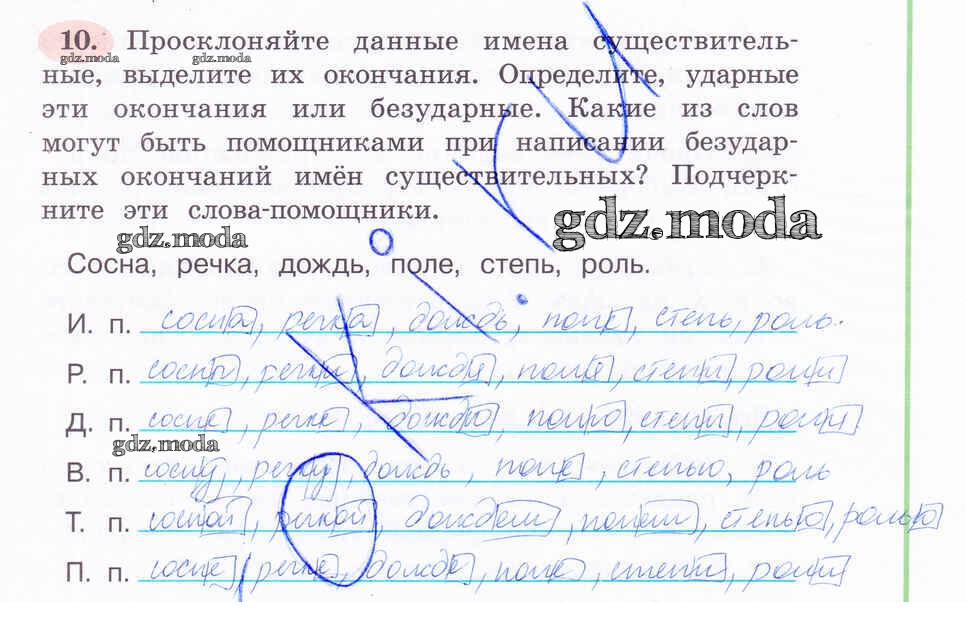 10. Просклоняйте данные имена существитель-
gdz.moda gdz.moda
ные, выделите их окончания. Определите, ударные
эти окончания или безударные. Какие из слов
могут быть помощниками при написании безудар-
ных окончаний имён существительных? Подчерк-
ните эти слова-помощники.
gdz.moda gdz.moda
Сосна, речка, дождь, поле, степь, роль.
И. п. сосна, речка, дождь, поле, степь, роль.
Р. п. сосны, речки, дождя, поля, степи, роли
Д. п. сосне, речке, дождю, полю, степи, роли
gdz.moda
В. п. сосну, речку, дождь, поле, степью, роль
Т. п. сосной, речкой, дождем, полем, степью, ролью
П. п. сосне, речке, дожде, поле, степи, роли